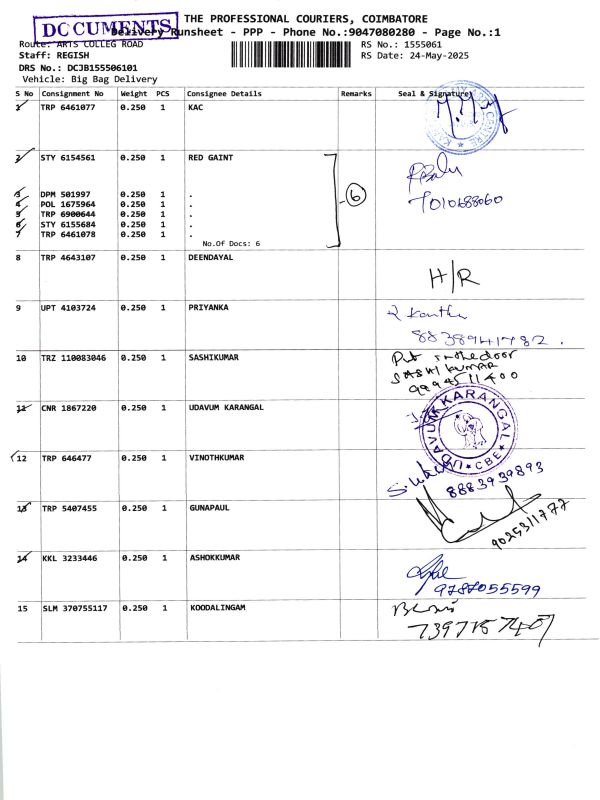 DOCUMENTS
THE PROFESSIONAL COURIERS, COIMBATORE
Delivery Runsheet - PPP - Phone No.:9047080280 - Page No.:1
Route: ARTS COLLEG ROAD
RS No.: 1555061
Staff: REGISH
RS Date: 24-May-2025
DRS No.: DCJB155506101
Vehicle: Big Bag Delivery
S No Consignment No Weight PCS Consignee Details Remarks Seal & Signature
1 TRP 6461077 0.250 1 KAC
2 STY 6154561 0.250 1 RED GAINT
7010688060
3 DPM 501997 0.250 1 .
4 POL 1675964 0.250 1 . 6
5 TRP 6900644 0.250 1 .
6 STY 6155684 0.250 1 .
7 TRP 6461078 0.250 1 .
No.Of Docs: 6
8 TRP 4643107 0.250 1 DEENDAYAL
H/R
9 UPT 4103724 0.250 1 PRIYANKA
8838941782.
10 TRZ 110083046 0.250 1 SASHIKUMAR
Put in the door
SASHI KUMAR
9994511400
11 CNR 1867220 0.250 1 UDAVUM KARANGAL
UDAVUM KARANGAL
★ CBE ★
12 TRP 646477 0.250 1 VINOTHKUMAR
8883939893
13 TRP 5407455 0.250 1 GUNAPAUL
9025311777
14 KKL 3233446 0.250 1 ASHOKKUMAR
9787055599
15 SLM 370755117 0.250 1 KOODALINGAM